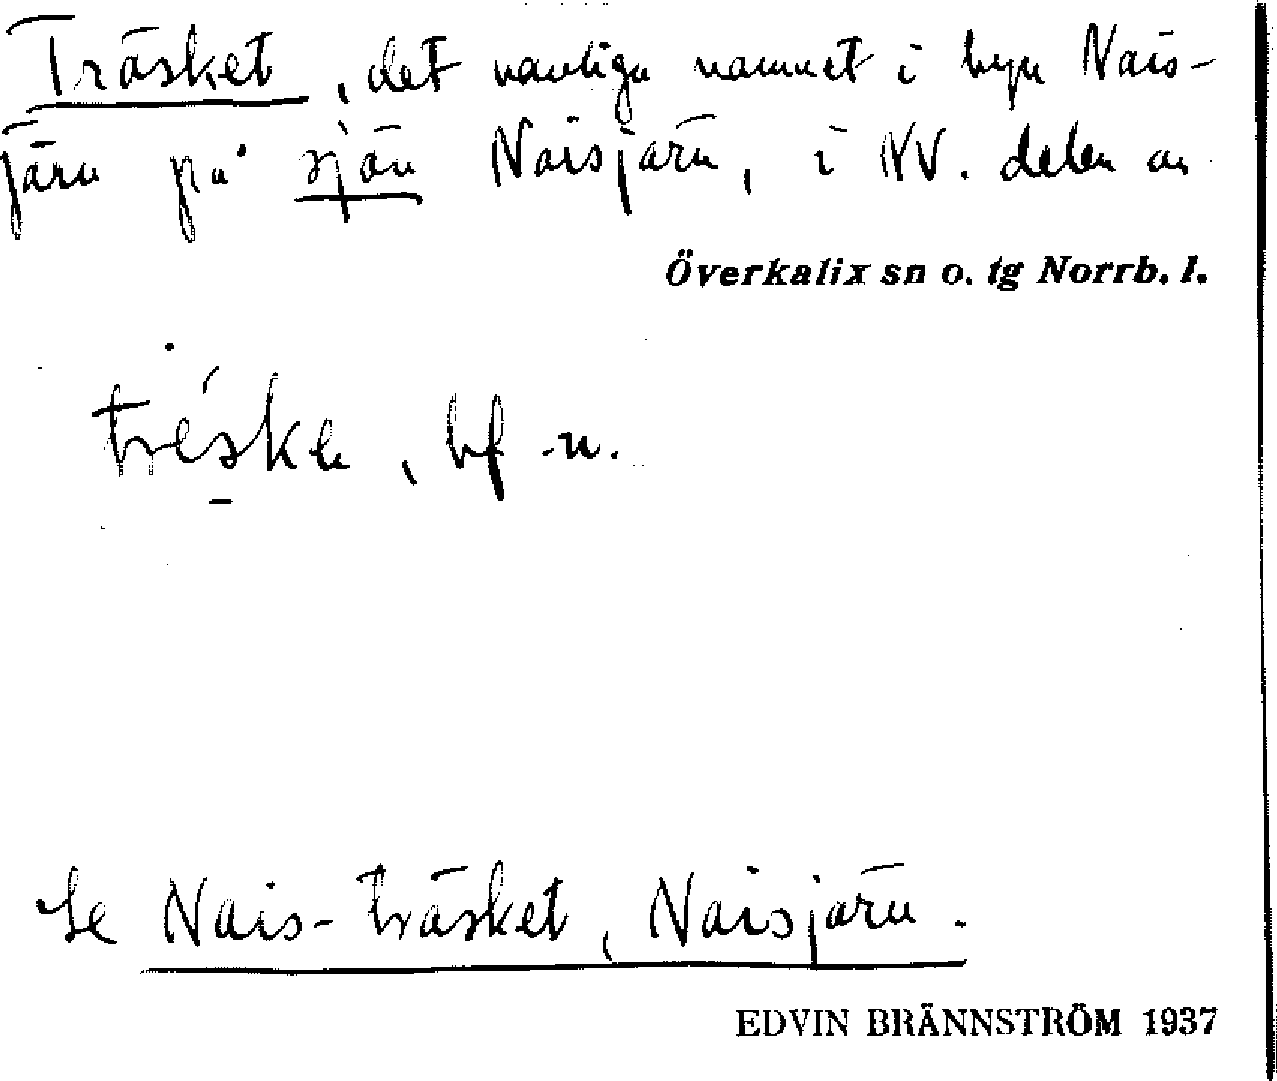 Träsket, det vanliga namnet i byn Nais-
järv på sjön Naisjärv, i NV. delen av
Överkalix sn o. tg Norrb. l.
tréske, bf n.
Se Nais-träsket, Naisjärv.
EDVIN BRÄNNSTRÖM 1937